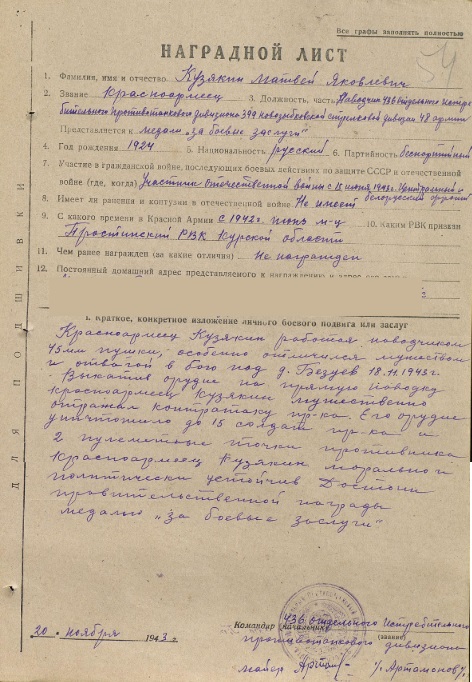 Все графы заполнять полностью
54
НАГРАДНОЙ ЛИСТ
1. Фамилия, имя и отчество Кузякин Матвей Яковлевич
2. Звание Красноармеец 3. Должность, часть Наводчик 436 отдельного истре
бительного противотанкового дивизиона 399 новозыбковской стрелковой дивизии 48 армии
Представляется к медали „за боевые заслуги"
4. Год рождения 1924 5. Национальность русский 6. Партийность беспартийный
7. Участие в гражданской войне, последующих боевых действиях по защите СССР и отечественной
войне (где, когда) Участник Отечественной войны с 15 1943г. Центральный и
белорусский фронты
8. Имеет ли ранения и контузии в отечественной войне Не имеет
9. С какого времени в Красной Армии С 1942г. июнь м-ц 10. Каким РВК призван
РВК Курской области
11. Чем ранее награжден (за какие отличия) Не награжден
12. Постоянный домашний адрес представляемого к награждению и адрес его
I. Краткое, конкретное изложение личного боевого подвига или заслуг
Красноармеец Кузякин работая наводчиком
45мм пушки, особенно отличился мужеством
и отвагой в бою под д. Безуев 18.11.1943г.
Выкатив орудие на прямую наводку
красноармеец Кузякин мужественно
отражал контратаку пр-ка. Его орудие
уничтожило до 15 солдат пр-ка и
2 пулеметные точки противника
Красноармеец Кузякин морально и
политически устойчив Достоин
правительственной награды
медалью „за боевые заслуги"
ДЛЯ ПОДШИВКИ
Командир начальник 436 отдельного истребительного
(звание)
противотанкового дивизиона
20 ноября 1943 г.
майор /Артамонов/